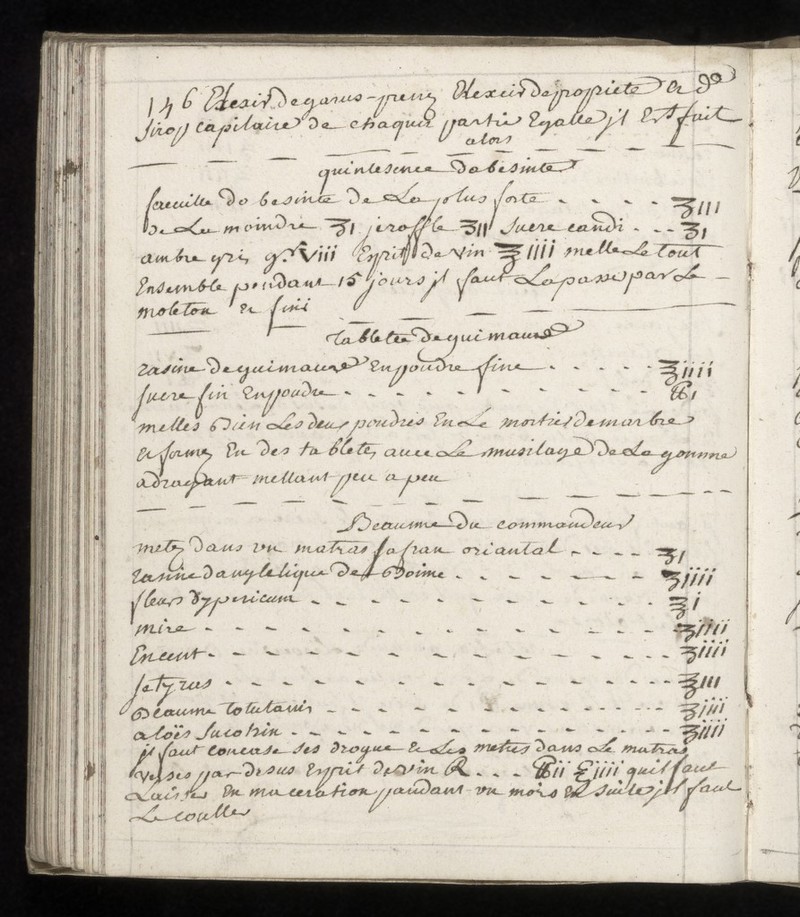 146 Elexir de garus - preney Elexcir de propriete & do
Sirop capilaire de chaqun partie Egalle jl Est fait
alors
quintesence dabesinte
fereuille do besinte de La plus forte - - - - ʒiii
de La moindre ʒi jeroffle ʒii Sucre candi - - - ʒi
ambre gris gr viii Esprit de vin ℥ iiii melle Le tout
Ensemble pendant 15 jours jl faut La passe par Le
moleton & fini
tablete de guimauve
rasine de guimauve En poudre fine - - - - - ʒiiii
sucre fin En poudre - - - - - - - - - - ℔i
melles Bien Les deux poudres En Le mortier de marbre
& formez En des tabletes avec Le musilage de La gomme
adragant mellant peu a peu
Beaume du commandeur
metez dans vn matras safran oriantal - - - - ʒi
rasine dangletique de Boime - - - - - - - ʒiiii
fleurs dypericum - - - - - - - - - - ʒi
mire - - - - - - - - - - - - - ʒiiii
Encent - - - - - - - - - - - - - ʒiiii
setyras - - - - - - - - - - - - - ʒiii
Beaume totutanis - - - - - - - - - - - ʒiiii
aloës sucotrin - - - - - - - - - - - - ʒiiii
jl faut concase ses drogue & Les metres dans Le matras
verses par desus Esprit de vin R - - - ℔ii ℥iiii quil faut
Laisser En maceration pandant vn mois En suite jl faut
Le couller